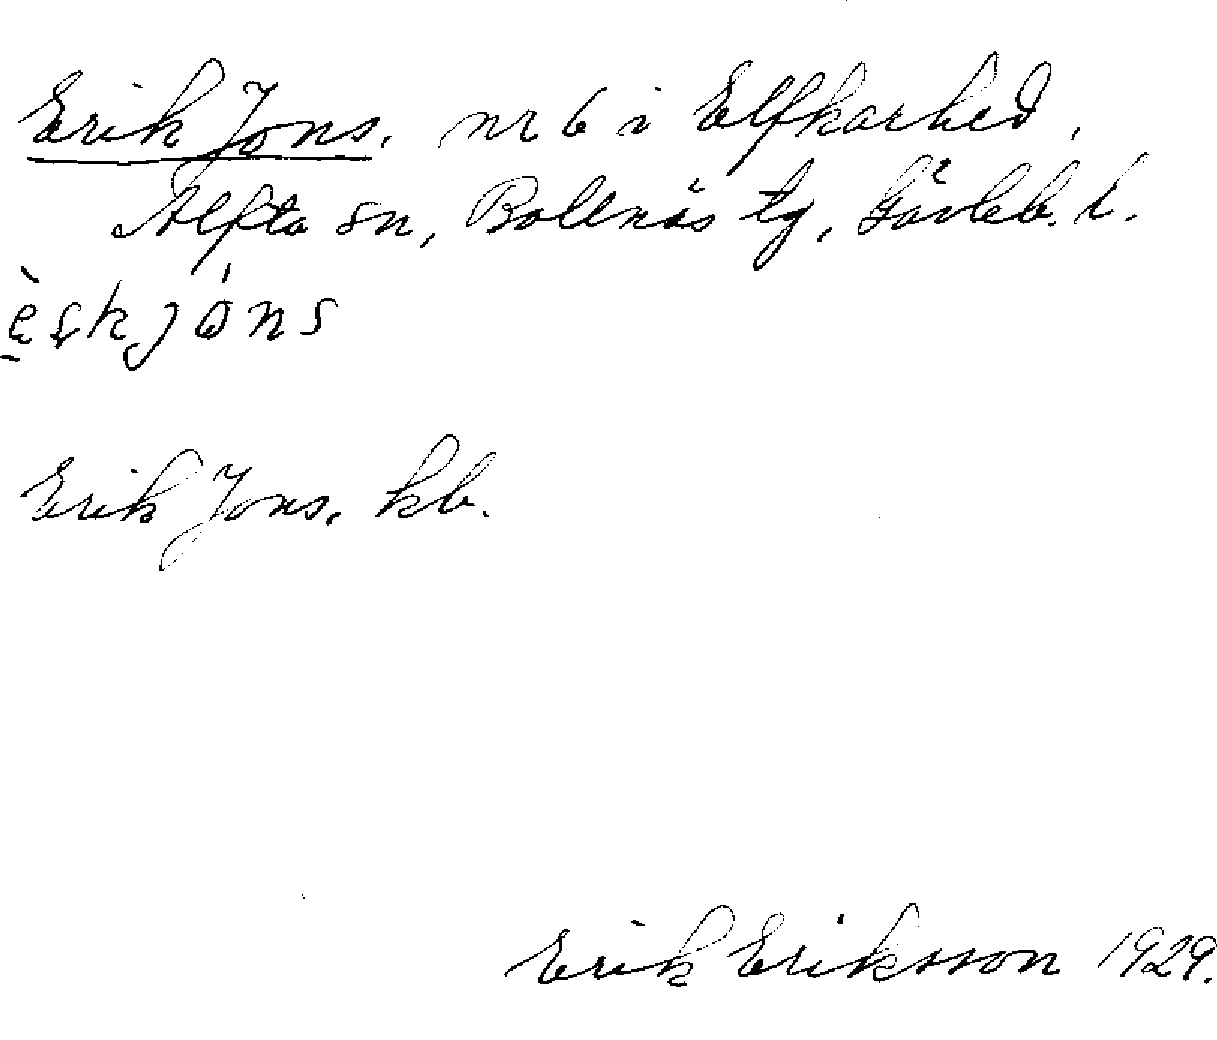 Erik Jons, nr 6 i Elfkarhed,
Alfta sn, Bollnäs tg, Gävleb. l.
Erik Jons, kb.
Erik Eriksson 1929.